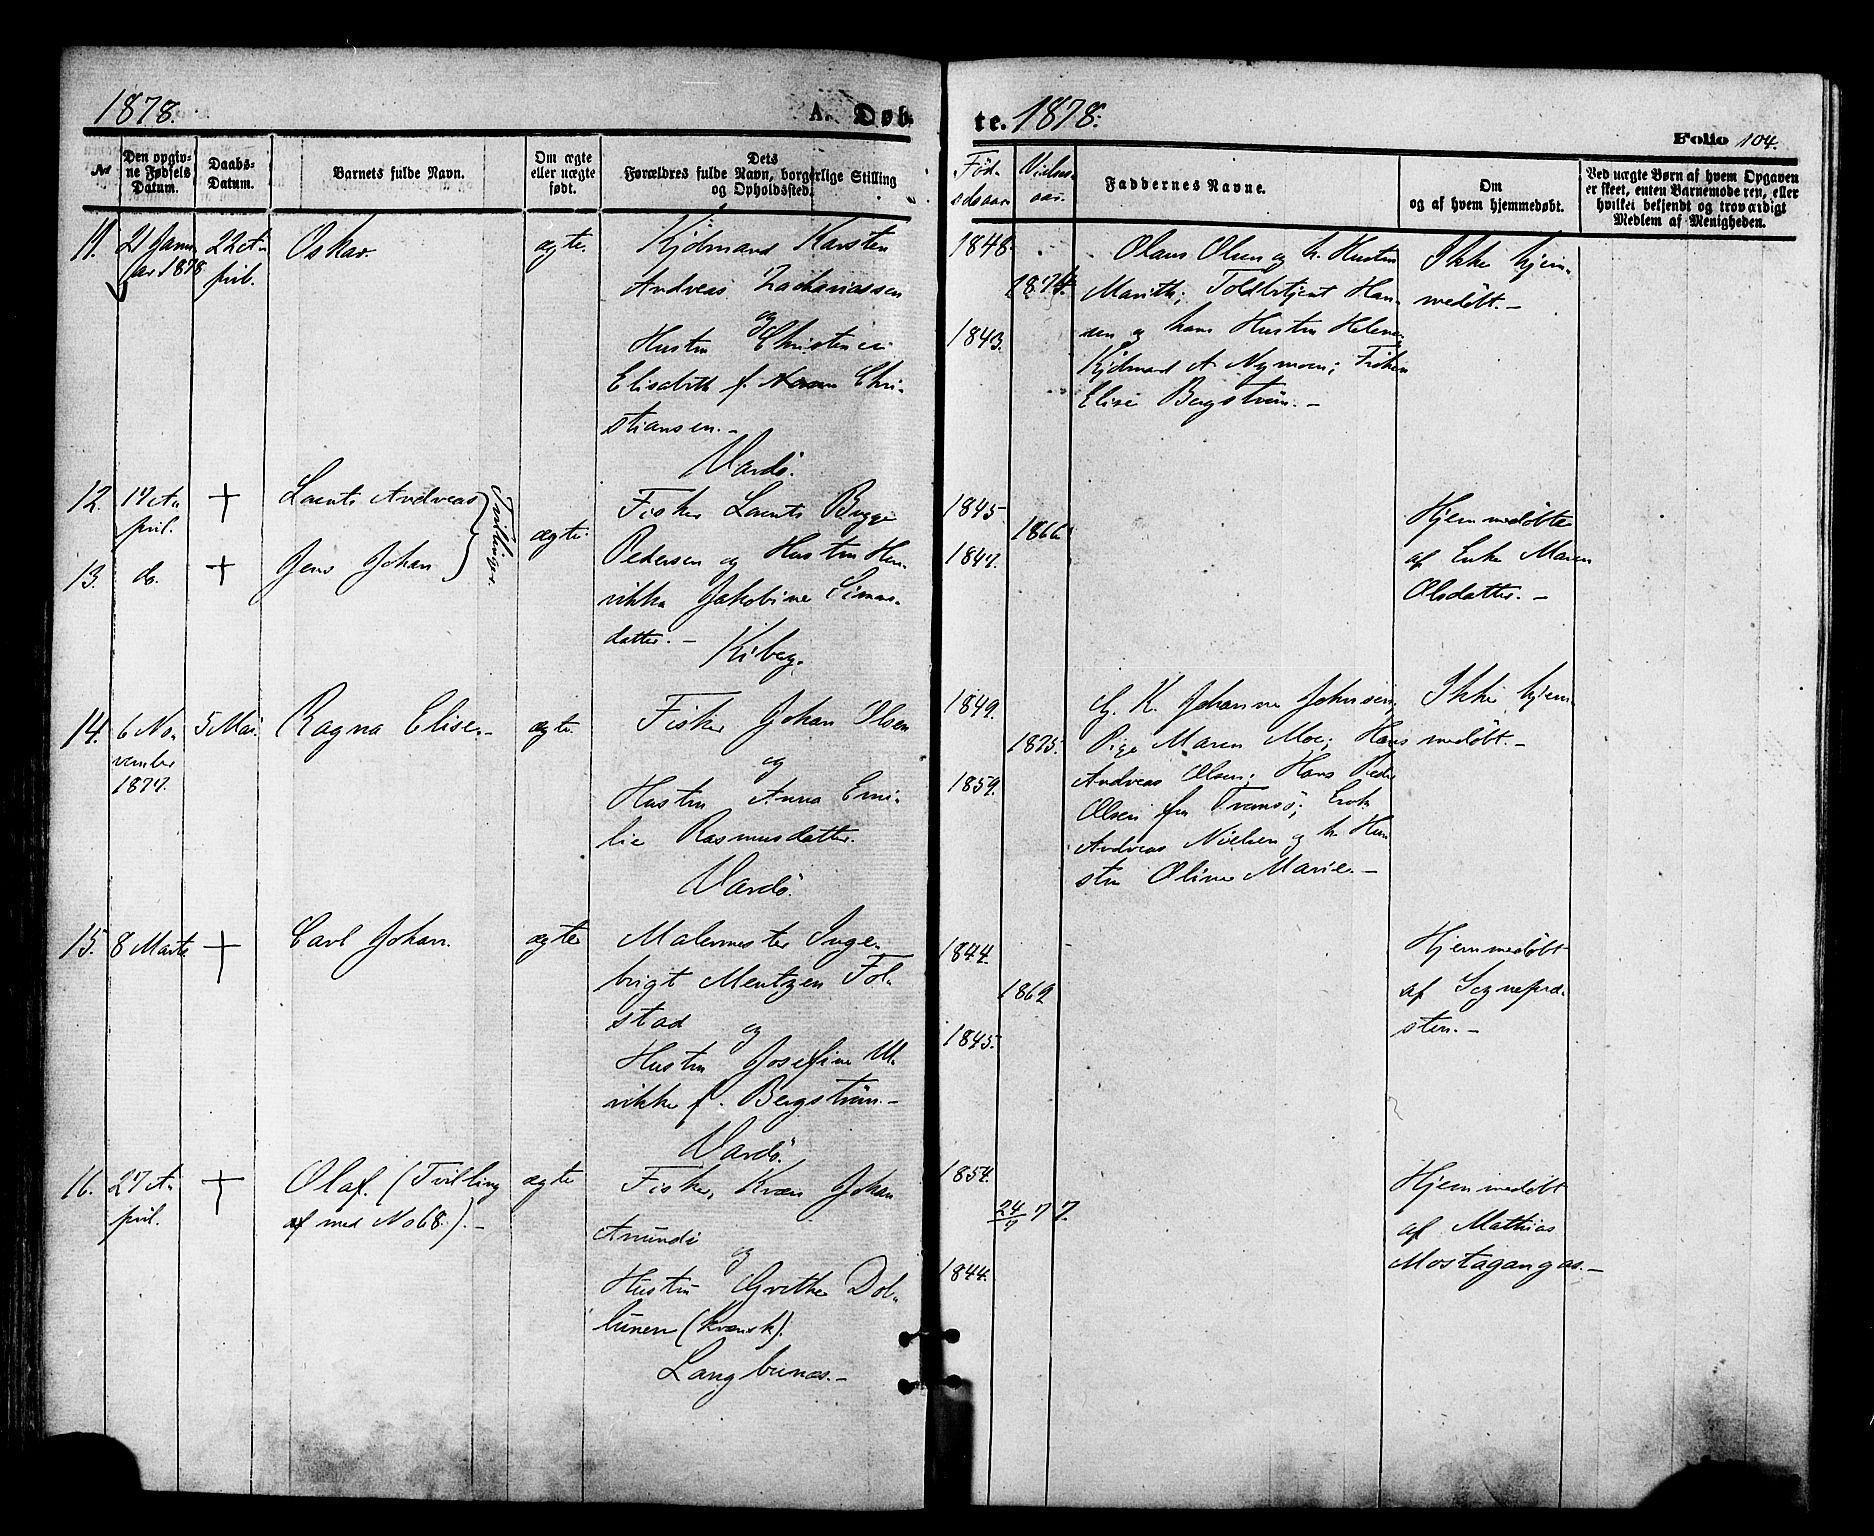 1878.
A. Døb-
te. 1878.
Folio 104.
No
Den opgiv-
ne Fødsels
Datum.
Daabs-
Datum.
Barnets fulde Navn.
Om ægte
eller uægte
født.
Dets
Forældres fulde Navn, borgerlige Stilling
og Opholdssted.
Fød-
selsaar
Vielses-
aar.
Faddernes Navne.
Om
og af hvem hjemmedøbt.
Ved uægte Børn af hvem Opgaven
er skeet, enten Barnemoderen, eller
hvilket bekjendt og troværdigt
Medlem af Menigheden.
11.
21 Janu
ar 1878
22 A-
pril.
Oskar.
ægte.
Kjøbmand Karsten
Andreas Zachariassen
og
Hustru Christence
Elisabeth f. Chri-
stiansen.-
Vardø.
1848.
1874.
1843.
Olaus Olsen og h. Hustru
Marith; Toldbetjent Han-
sen og hans Hustru Helene;
Kjøbmand A. Nymoen; Frøken
Elise Bergstrøm.-
Ikke hjem-
medøbt.-
12.
17 A-
pril.
+
Laurits Andreas
13.
do.
+
Jens Johan
Tvillinger
ægte.
Fisker Laurits Bugge
Pedersen og Hustru Hen-
rikke Jakobine Simons-
datter.-
Kiberg.
1845.
1866.
1847.
Hjemmedøbte
af Enke Maren
Olsdatter.-
14.
6 No-
vember
1877.
5 Mai.
Ragna Elise.-
ægte.
Fisker Johan Olsen
og
Hustru Anna Emi-
lie Rasmusdatter.
Vardø.
1849.
1875.
1859.
G. K. Johanne Johnsen;
Pige Maren Moe; Hans
Andreas Olsen; Hans Peder
Olsen fra Tromsø;
Andreas Nielsen og h. Hu-
stru Oline Marie.-
Ikke hjem-
medøbt.-
15.
8 Marts
+
Carl Johan.
ægte
Malermester Inge-
brigt Mentzen Fol-
stad
og
Hustru Josefine Ul-
rikke f. Bergstrøm.-
Vardø.
1844.
1869
1845.
Hjemmedøbt
af Sognepræ-
sten.-
16.
27 A-
pril.
+
Olaf. (Tvilling
af med No 68.).-
ægte
Fisker, Kvæn Johan
Anundi
og
Hustru Grethe Dol-
lunen (kvænsk).
Langbunæs.-
1854.
24/7 77.
1844.
Hjemmedøbt
af Mathias
Mostagangas.-